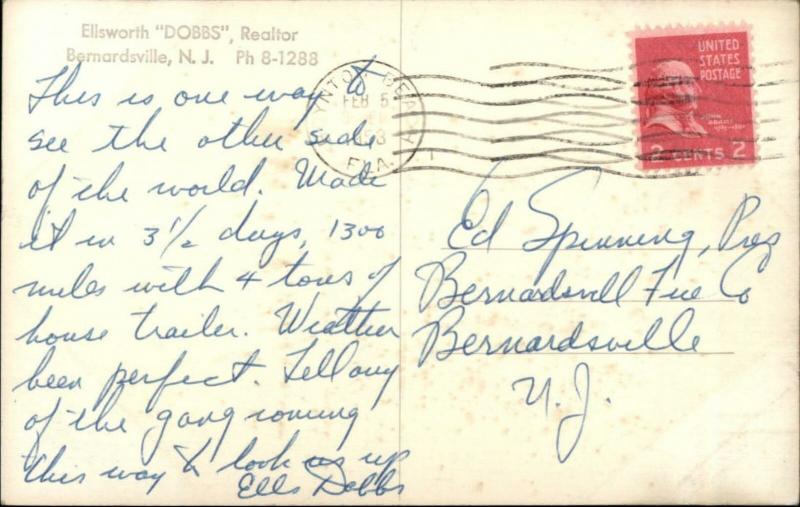 Ellsworth "DOBBS", Realtor
Bernardsville, N. J. Ph 8-1288
This is one way to
see the other side
of the world. Made
it in 3 1/2 days, 1300
miles with 4 tons of
house trailer. Weather
been perfect. Tell any
of the gang coming
this way to look us up
Ells Dobbs
YNTON BEACH
FEB 5
1953
FLA.
UNITED
STATES
POSTAGE
JOHN ADAMS
2 CENTS 2
Ed Spinning, Pres
Bernardsvill Fire Co
Bernardsville
N. J.